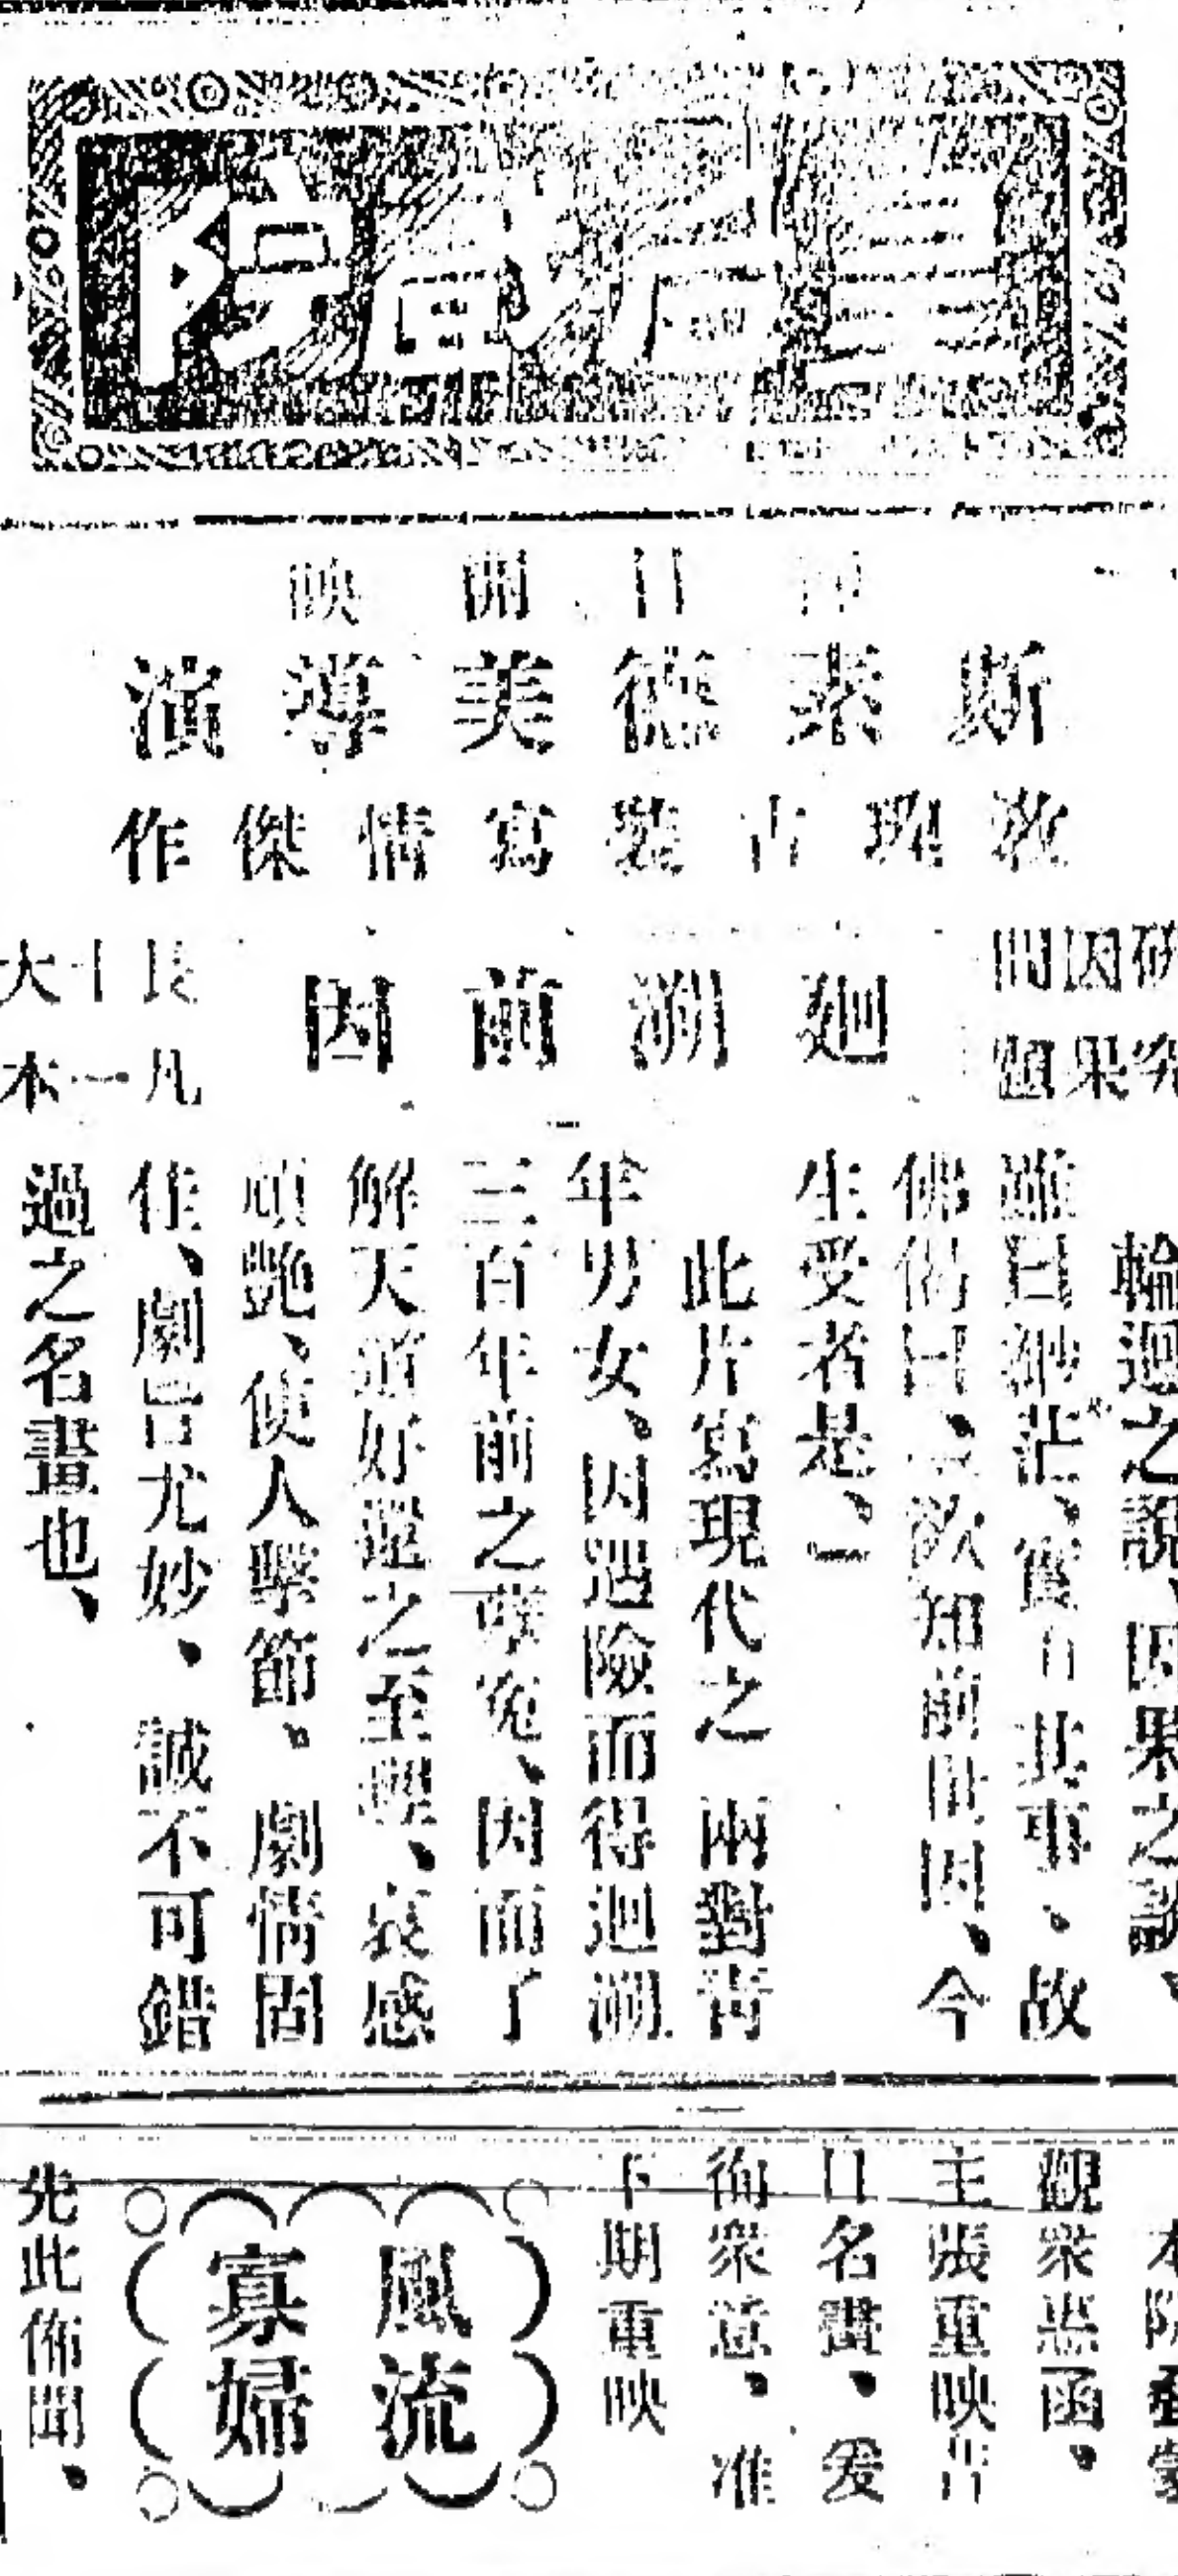 戲院
日開映
斯素德美導演
教理古裝寫情傑作
研究
因果
問題
迴溯前因
長凡
十一
大本
輪迴之說、因果之說、
雖曰渺茫、實有其事、故
佛偈曰、欲知前世因、今
生受者是、」
此片寫現代之兩對靑
年男女、因遇險而得迴溯
三百年前之孽冤、因而了
解天道好還之至理、哀感
頑艷、使人擊節、劇情固
佳、劇旨尤妙、誠不可錯
過之名畫也、
本院疊蒙
觀衆惠函、
主張重映昔
日名畫、爰
徇衆意、准
下期重映
風流
寡婦
先此佈聞、